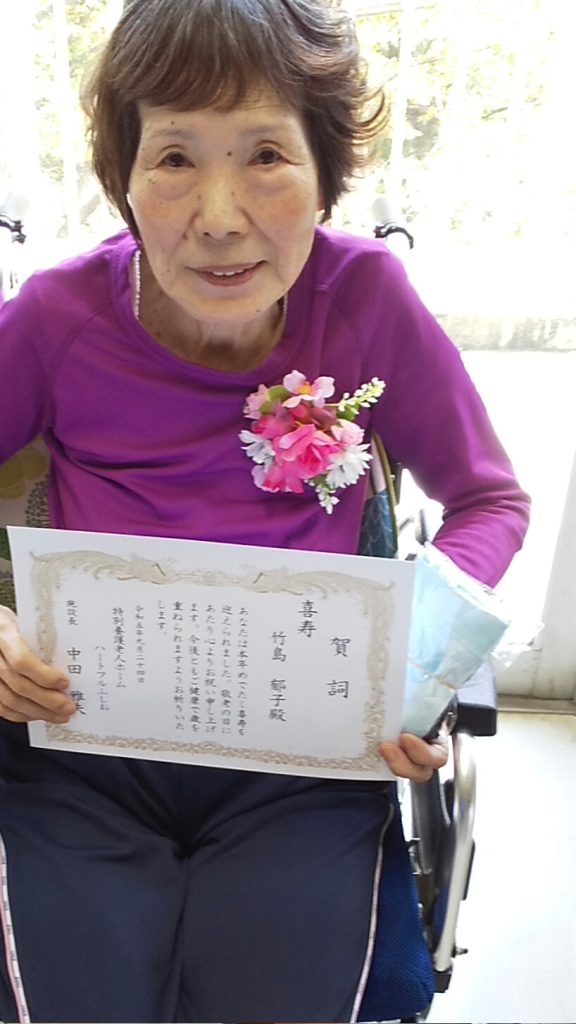 賀詞
喜寿
竹島 郁子殿
あなたは本年めでたく喜寿を
迎えられました。敬老の日に
あたり心よりお祝い申し上げ
ます。今後ともご健康で歳を
重ねられますようお祈りいた
します。
令和五年九月二十四日
特別養護老人ホーム
ハートフルふしお
施設長 中田 雅夫